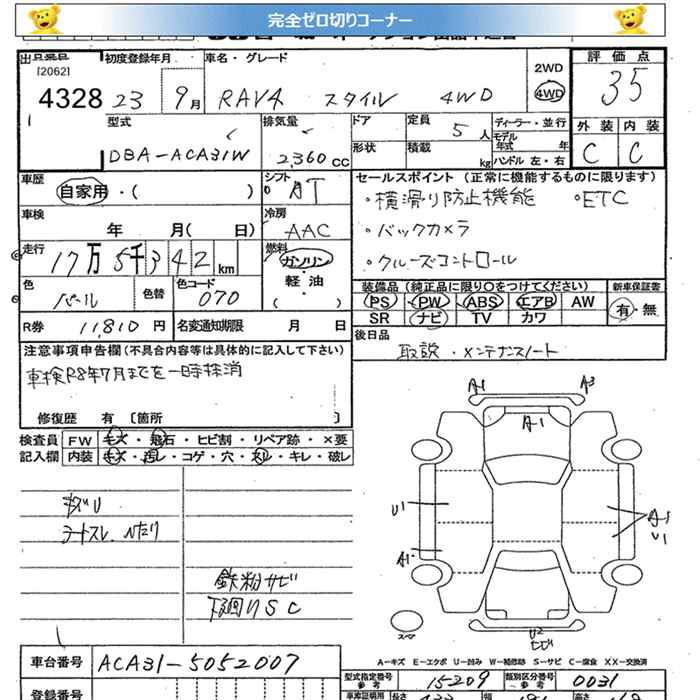 完全ゼロ切りコーナー
[2062]
4328
初度登録年月
23 9月
車名・グレード
RAV4 スタイル 4WD
2WD
4WD
評価点
35
外装 内装
C C
型式
DBA-ACA31W
排気量
2,360 CC
ドア
形状
定員 5人
積載 kg
ディーラー・並行
モデル年式 年
ハンドル 左・右
車歴
自家用・( )
シフト
AT
セールスポイント (正常に機能するものに限ります)
・横滑り防止機能 ・ETC
・バックカメラ
・クルーズコントロール
車検
年 月( 日)
冷房
AAC
走行
17万5千342km
燃料
ガソリン・軽油・( )
色
パール
色替
色コード
070
装備品 (純正品に限り〇をつけてください)
新車保証書
PS PW ABS エアB AW
SR ナビ TV カワ
有・無
R券 11,810円
名変通知期限 月 日
後日品
取説・メンテナンスノート
注意事項申告欄 (不具合内容等は具体的に記入して下さい)
車検R8年7月までを一時抹消
修復歴 有 〔箇所
検査員記入欄
FW キズ・飛石・ヒビ割・リペア跡・×要
内装 キズ・汚レ・コゲ・穴・スレ・キレ・破レ
キズU
シートスレ、ヘたり
鉄粉サビ
下廻りSC
A1 A3
A1
U1
A1
A1
U1
スペア
U2
ヒビ
A-キズ E-エクボ U-凹み W-補修跡 S-サビ C-腐食 XX-交換済
車台番号 ACA31-5052007
型式指定番号 参考 15209
類別区分番号 参考 0031
登録番号
長さ 幅 高さ